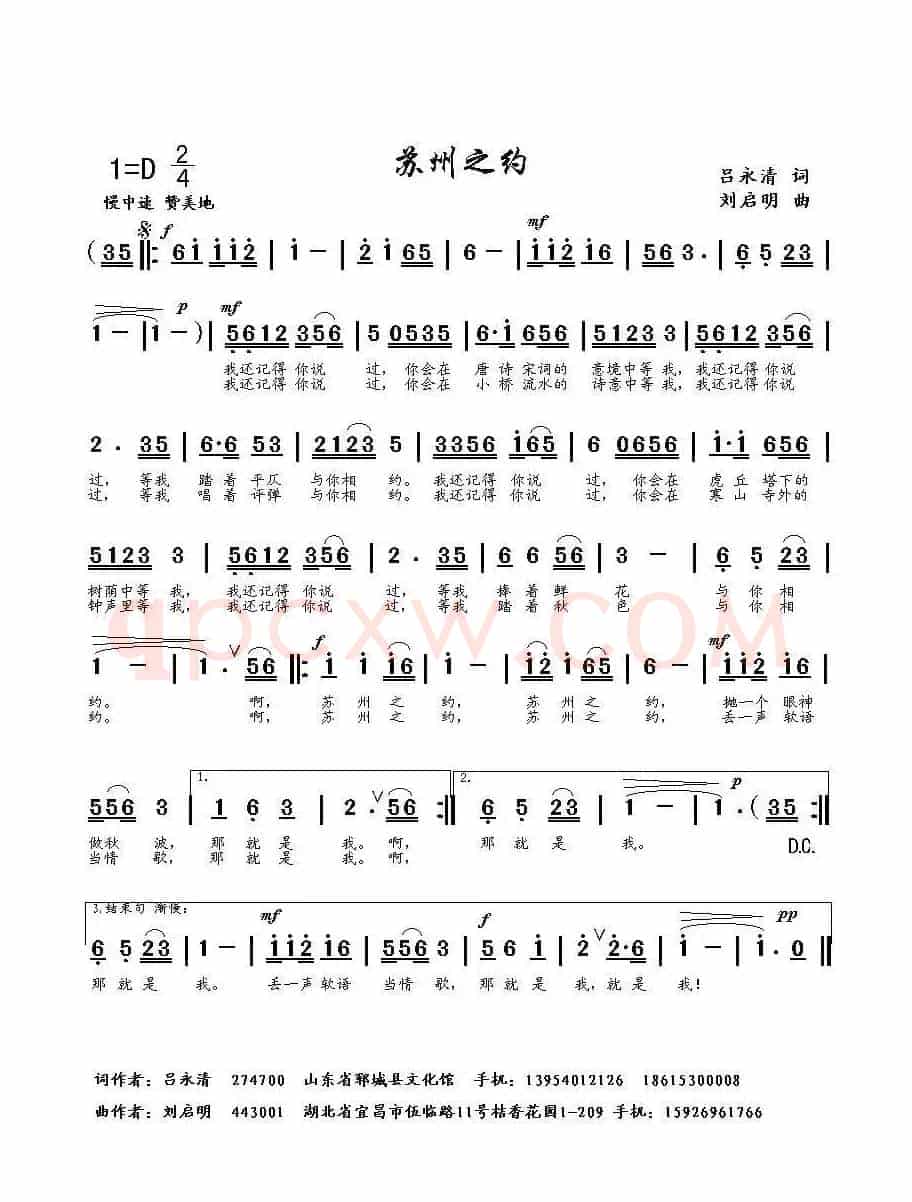 苏州之约
1=D 2/4
吕永清 词
慢中速 赞美地
刘启明 曲
f mf
(35 ‖: 6i iii2 | i - | 2 i 65 | 6 - | iii2 i6 | 56 3. | 6 5 23 |
p mf
1 - | 1 - ) | 5612 356 | 5 0535 | 6·i 656 | 5123 3 | 5612 356 |
我还记得 你说 过, 你会在 唐 诗 宋词的 意境中等 我, 我还记得 你说
我还记得 你说 过, 你会在 小 桥 流水的 诗意中等 我, 我还记得 你说
2 . 35 | 6·6 53 | 2123 5 | 3356 i65 | 6 0656 | i·i 656 |
过, 等我 踏着 平仄 与你相 约。我还记得 你说 过, 你会在 虎 丘 塔下的
过, 等我 唱着 评弹 与你相 约。我还记得 你说 过, 你会在 寒 山 寺外的
5123 3 | 5612 356 | 2 . 35 | 6 6 56 | 3 - | 6 5 23 |
树荫中等 我, 我还记得 你说 过, 等我 捧 着 鲜 花 与 你 相
钟声里等 我, 我还记得 你说 过, 等我 踏 着 秋 色 与 你 相
qpcxw.COM
f mf
1 - | 1 . ∨ 56 ‖: i i i6 | i - | i2 i65 | 6 - | ii2 i6 |
约。 啊, 苏 州 之 约, 苏 州 之 约, 抛一个 眼神
约。 啊, 苏 州 之 约, 苏 州 之 约, 丢一声 软语
1. 2. p
556 3 | 1 6 3 | 2 . ∨ 56 :‖ 6 5 23 | 1 - | 1 . ( 35 :‖
做秋 波, 那 就 是 我。啊, 那 就 是 我。 D.C.
当情 歌, 那 就 是 我。啊,
3.结束句 渐慢: mf f pp
6 5 23 | 1 - | iii2 i6 | 556 3 | 5 6 i | 2 ∨ 2·6 | i - | i . 0 ‖
那 就 是 我。 丢一声 软语 当情 歌, 那 就 是 我, 就 是 我!
词作者: 吕永清 274700 山东省郓城县文化馆 手机: 13954012126 18615300008
曲作者: 刘启明 443001 湖北省宜昌市伍临路11号桔香花园1-209 手机: 15926961766